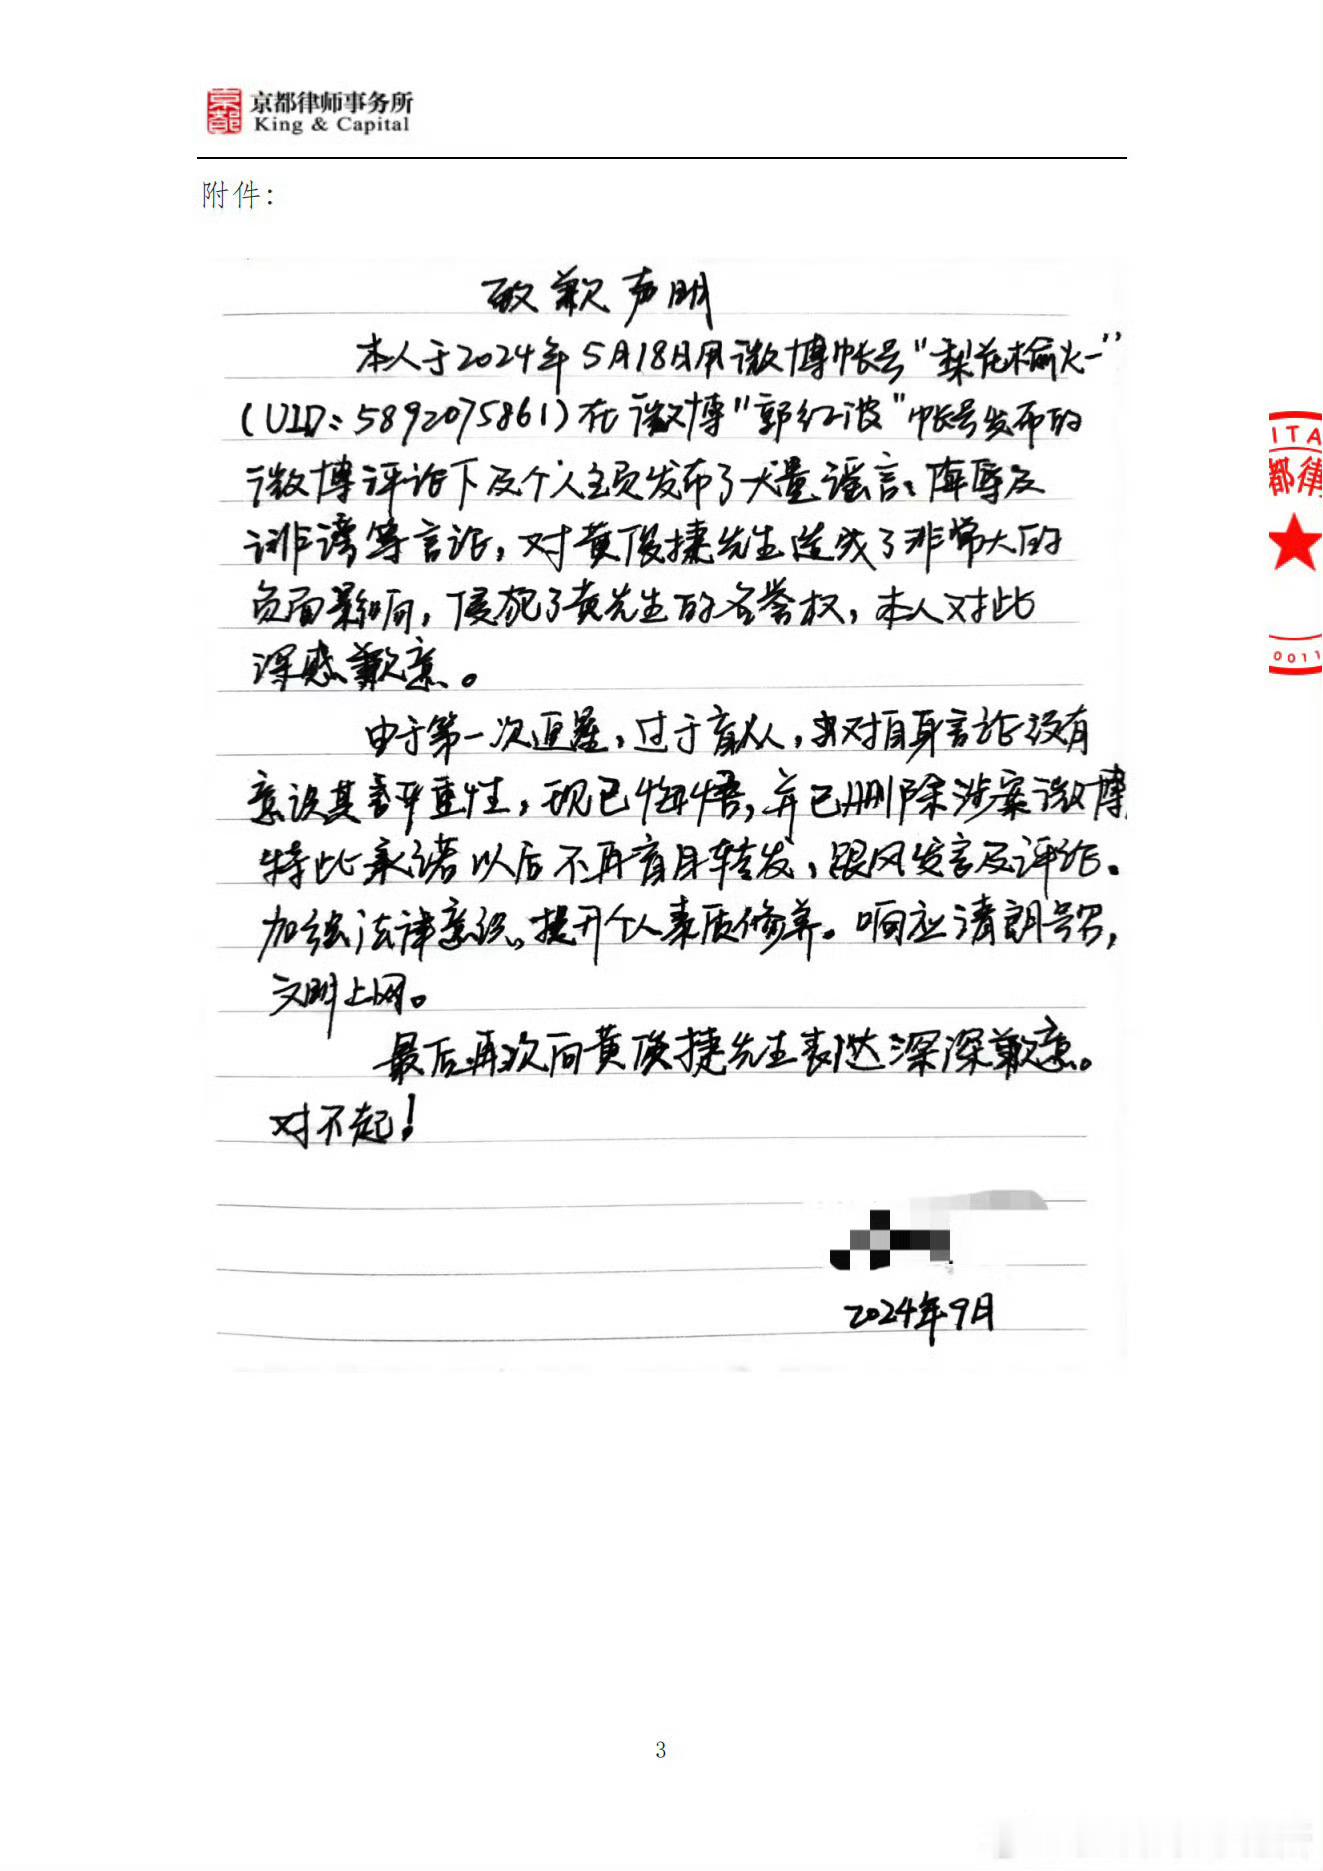 京都律师事务所
King & Capital
附件：
致歉声明
本人于2024年5月18日用微博帐号“梨花榆火一”
(UID：5892075861)在微博“郭红波”帐号发布的
微博评论下及个人主页发布了大量谣言、侮辱及
诽谤等言论，对黄俊捷先生造成了非常大的
负面影响，侵犯了黄先生的名誉权，本人对此
深感歉意。
由于第一次追星，过于盲从，对自身言论没有
意识其严重性，现已悔悟，并已删除涉案微博
特此承诺以后不再盲目转发，跟风发言及评论。
加强法律意识、提升个人素质修养。响应清朗号召，
文明上网。
最后再次向黄俊捷先生表达深深歉意。
对不起！
2024年9月
ITA
都律
0011
3